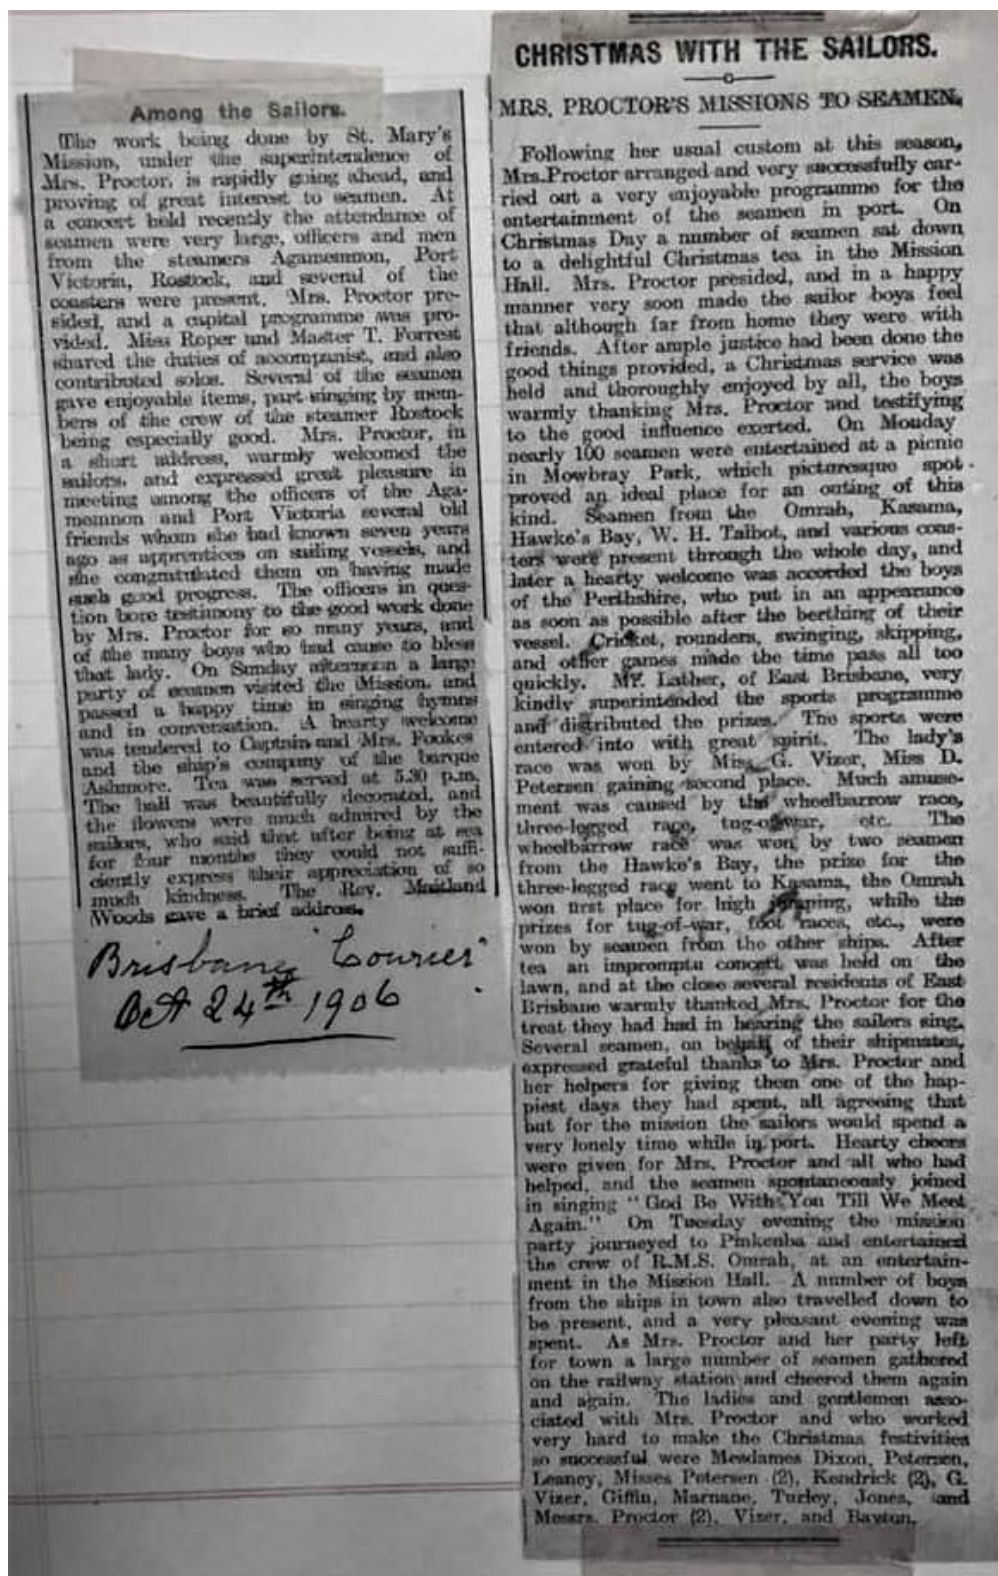 Among the Sailors.
The work being done by St. Mary's
Mission, under the superintendence of
Mrs. Proctor, is rapidly going ahead, and
proving of great interest to seamen. At
a concert held recently the attendance of
seamen were very large, officers and men
from the steamers Agamemnon, Port
Victoria, Rostock, and several of the
coasters were present. Mrs. Proctor pre-
sided, and a capital programme was pro-
vided. Miss Roper and Master T. Forrest
shared the duties of accompanist, and also
contributed solos. Several of the seamen
gave enjoyable items, part singing by mem-
bers of the crew of the steamer Rostock
being especially good. Mrs. Proctor, in
a short address, warmly welcomed the
sailors, and expressed great pleasure in
meeting among the officers of the Aga-
memnon and Port Victoria several old
friends whom she had known seven years
ago as apprentices on sailing vessels, and
she congratulated them on having made
such good progress. The officers in ques-
tion bore testimony to the good work done
by Mrs. Proctor for so many years, and
of the many boys who had cause to bless
that lady. On Sunday afternoon a large
party of seamen visited the Mission, and
passed a happy time in singing hymns
and in conversation. A hearty welcome
was tendered to Captain and Mrs. Fookes
and the ship's company of the barque
Ashmore. Tea was served at 5.30 p.m.
The hall was beautifully decorated, and
the flowers were much admired by the
sailors, who said that after being at sea
for four months they could not suffi-
ciently express their appreciation of so
much kindness. The Rev. Maitland
Woods gave a brief address.
Brisbane Courier
Oct 24th 1906
CHRISTMAS WITH THE SAILORS.
MRS. PROCTOR'S MISSIONS TO SEAMEN.
Following her usual custom at this season,
Mrs. Proctor arranged and very successfully car-
ried out a very enjoyable programme for the
entertainment of the seamen in port. On
Christmas Day a number of seamen sat down
to a delightful Christmas tea in the Mission
Hall. Mrs. Proctor presided, and in a happy
manner very soon made the sailor boys feel
that although far from home they were with
friends. After ample justice had been done the
good things provided, a Christmas service was
held and thoroughly enjoyed by all, the boys
warmly thanking Mrs. Proctor and testifying
to the good influence exerted. On Monday
nearly 100 seamen were entertained at a picnic
in Mowbray Park, which picturesque spot
proved an ideal place for an outing of this
kind. Seamen from the Omrah, Kasama,
Hawke's Bay, W. H. Talbot, and various coas-
ters were present through the whole day, and
later a hearty welcome was accorded the boys
of the Perthshire, who put in an appearance
as soon as possible after the berthing of their
vessel. Cricket, rounders, swinging, skipping,
and other games made the time pass all too
quickly. Mr. Lather, of East Brisbane, very
kindly superintended the sports programme
and distributed the prizes. The sports were
entered into with great spirit. The lady's
race was won by Miss G. Vizer, Miss D.
Petersen gaining second place. Much amuse-
ment was caused by the wheelbarrow race,
three-legged race, tug-of-war, etc. The
wheelbarrow race was won by two seamen
from the Hawke's Bay, the prize for the
three-legged race went to Kasama, the Omrah
won first place for high jumping, while the
prizes for tug-of-war, foot races, etc., were
won by seamen from the other ships. After
tea an impromptu concert was held on the
lawn, and at the close several residents of East
Brisbane warmly thanked Mrs. Proctor for the
treat they had had in hearing the sailors sing.
Several seamen, on behalf of their shipmates,
expressed grateful thanks to Mrs. Proctor and
her helpers for giving them one of the hap-
piest days they had spent, all agreeing that
but for the mission the sailors would spend a
very lonely time while in port. Hearty cheers
were given for Mrs. Proctor and all who had
helped, and the seamen spontaneously joined
in singing "God Be With You Till We Meet
Again." On Tuesday evening the mission
party journeyed to Pinkenba and entertained
the crew of R.M.S. Omrah, at an entertain-
ment in the Mission Hall. A number of boys
from the ships in town also travelled down to
be present, and a very pleasant evening was
spent. As Mrs. Proctor and her party left
for town a large number of seamen gathered
on the railway station and cheered them again
and again. The ladies and gentlemen asso-
ciated with Mrs. Proctor and who worked
very hard to make the Christmas festivities
so successful were Mesdames Dixon, Petersen,
Leaney, Misses Petersen (2), Kendrick (2), G.
Vizer, Giffin, Marnane, Turley, Jones, and
Messrs. Proctor (2), Vizer, and Baxton.